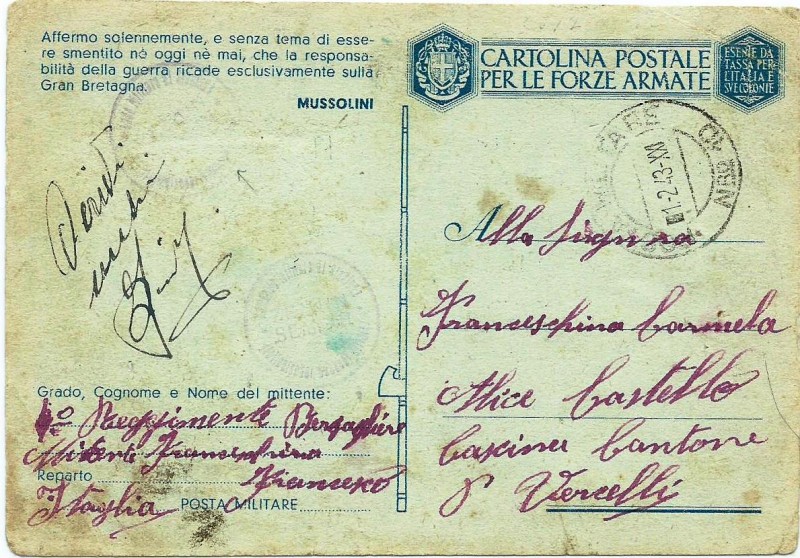 Affermo solennemente, e senza tema di esse-
re smentito nè oggi nè mai, che la responsa-
bilità della guerra ricade esclusivamente sulla
Gran Bretagna.
MUSSOLINI
CARTOLINA POSTALE
PER LE FORZE ARMATE
ESENTE DA
TASSA PER
L'ITALIA E
SVE COLONIE
1-2-43-XXI
Alla Signora
Franceschina Carmela
Alice Castello
Cascina Cantone
P Vercelli
Grado, Cognome e Nome del mittente:
4° Reggimento Bersagliere
Franceschina
Reparto Francesco
Itaglia POSTA MILITARE